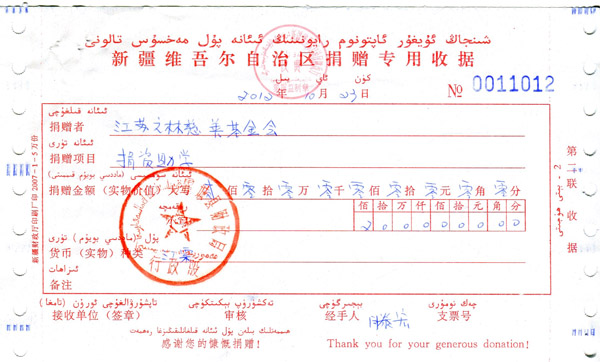 شىنجاڭ ئۇيغۇر ئاپتونوم رايونىنىڭ ئىئانە پۇل مەخسۇس تالونى
新疆维吾尔自治区捐赠专用收据
يىل ئاي كۈن
2012年10月23日
№ 0011012
ئىئانە قىلغۇچى
捐赠者 江苏文林慈善基金会
ئىئانە تۈرى
捐赠项目 捐资助学
捐赠金额(实物价值)大写 佰 拾零万 零千零佰零拾零元零角零分
佰拾万仟佰拾元角分
2 0 0 0 0 0 0
پۇل (ماددىي بويۇم) تۈرى
货币(实物)种类
ئىزاھات
备注
تاپشۇرۇۋالغۇچى ئورۇن (تامغا) تەكشۈرۈپ بېكىتكۈچى بېجىرگۈچى چەك نومۇرى
接收单位(签章) 审核 经手人 支票号
感谢您的慷慨捐赠! Thank you for your generous donation!
新疆财政厅印刷厂印 2007-1-5万份
第二联 收据